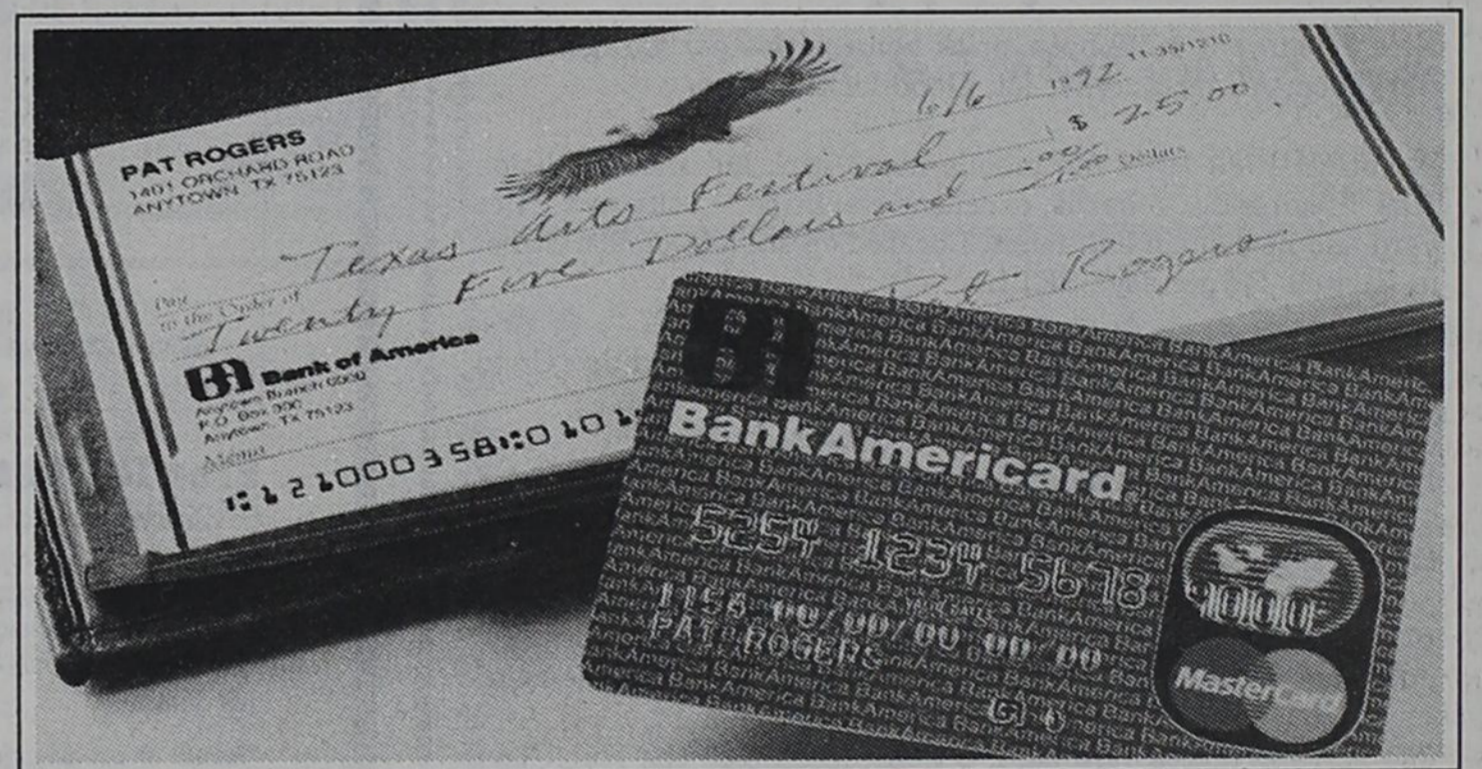 PAT ROGERS
1401 ORCHARD ROAD
ANYTOWN, TX 75123
11-35/1210
6/6 1992
Pay
to the Order of
Texas Arts Festival $ 25.00
Twenty Five Dollars and .00/1.00 Dollars
BA Bank of America
Anytown Branch 0000
P.O. Box 000
Anytown, TX 75123
Memo
Pat Rogers
⑆121000358⑆0101
BA
BankAmericard
5254 1234 5678
1156 00/00/00 00/00
PAT ROGERS
MasterCard
BankAmerica BankAmerica BankAmerica BankAmerica